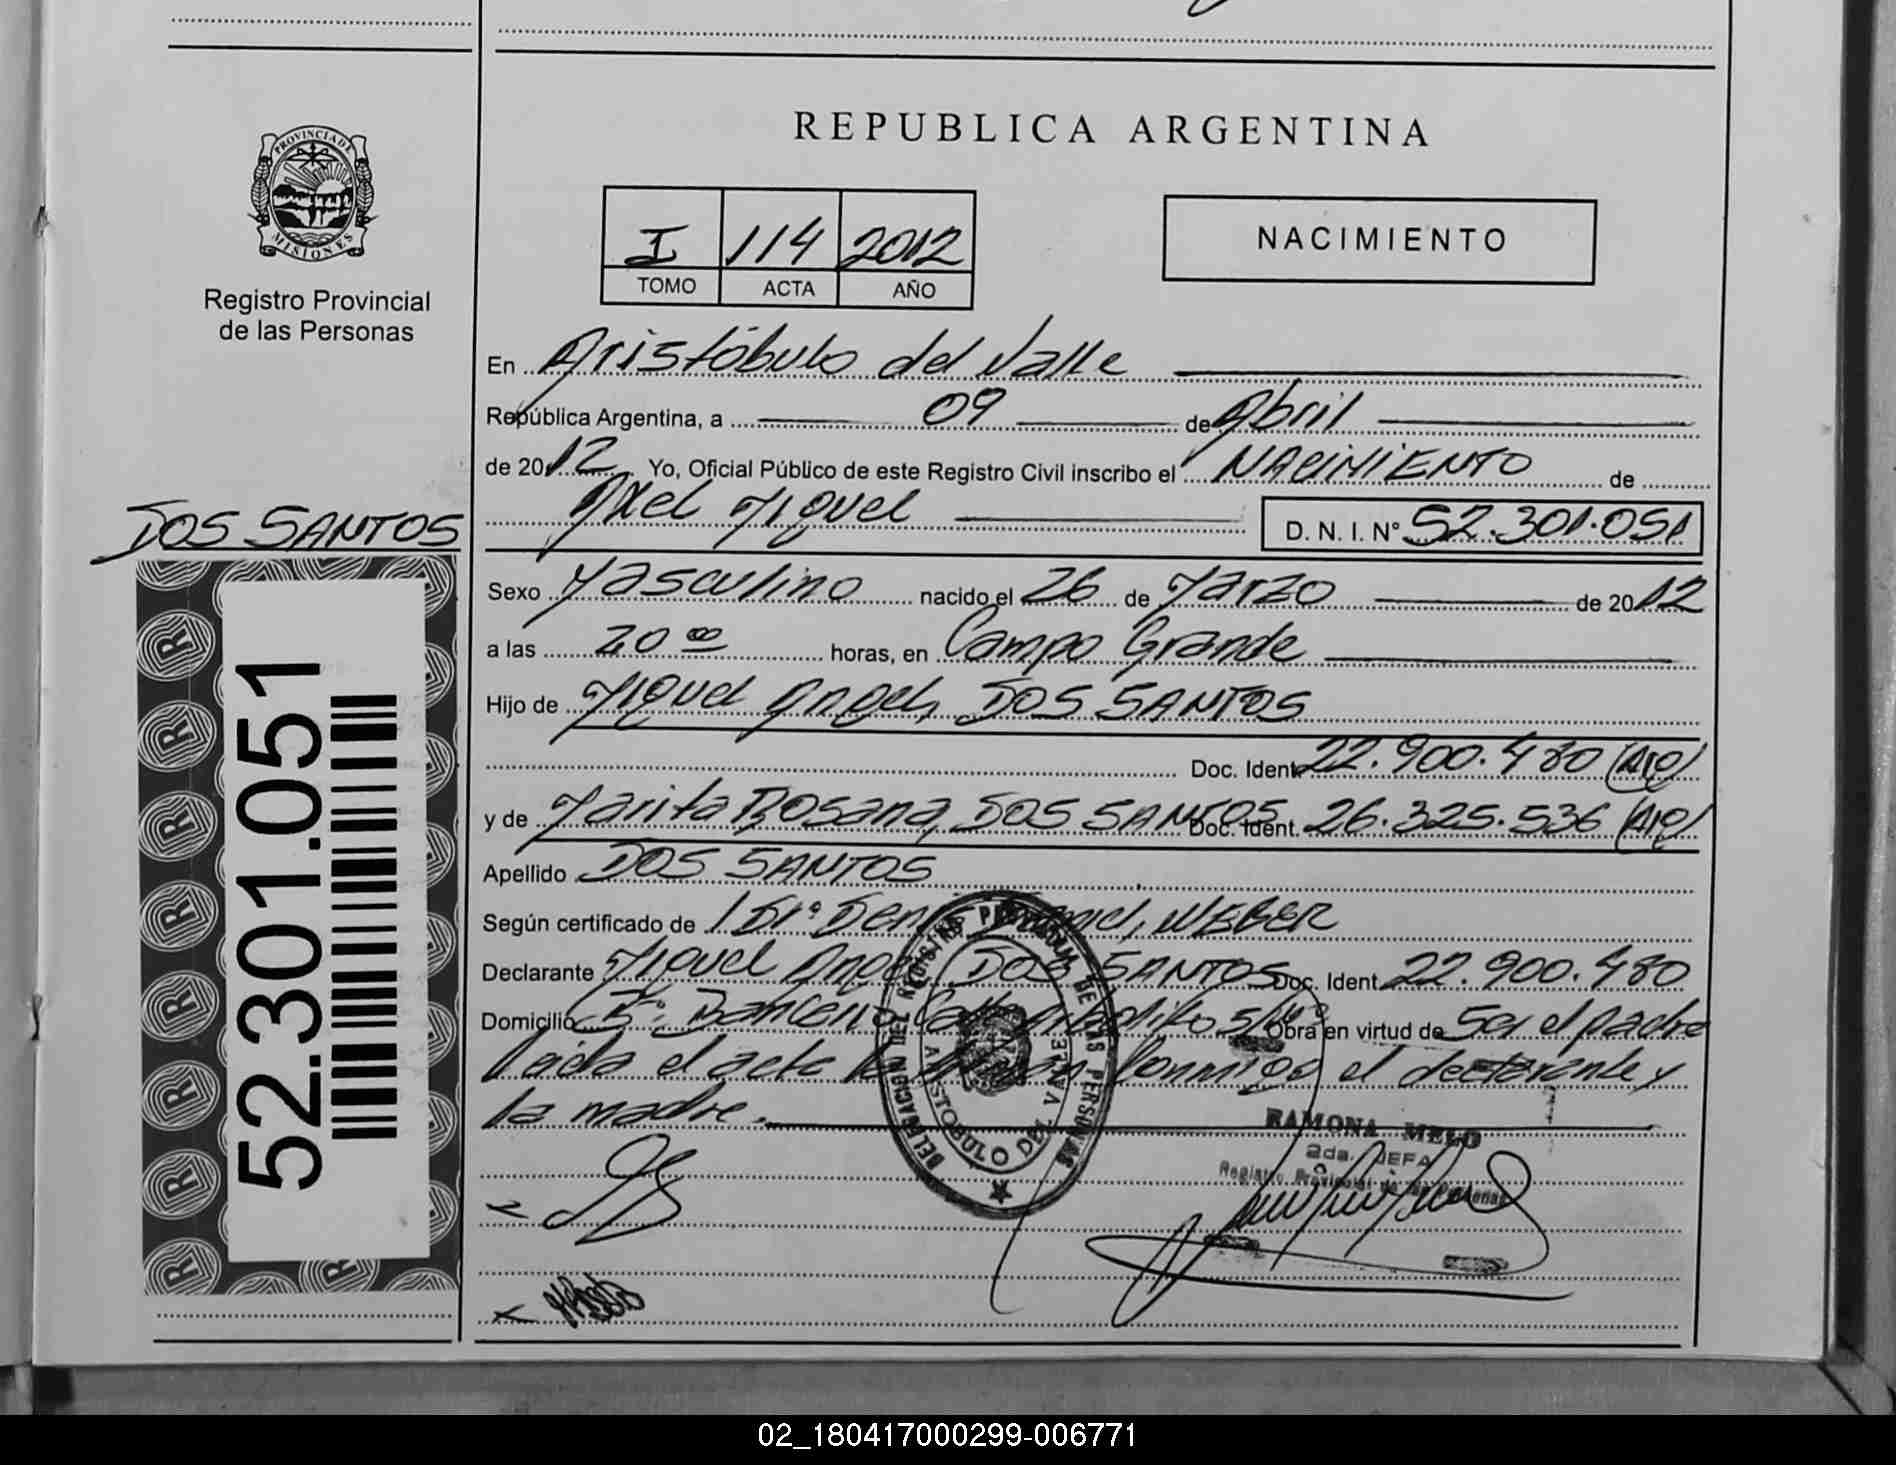 PROVINCIA DE
MISIONES
Registro Provincial
de las Personas
DOS SANTOS
52.301.051
REPUBLICA ARGENTINA
I 114 2012
TOMO ACTA AÑO
NACIMIENTO
En Aristóbulo del Valle
República Argentina, a 09 de Abril
de 2012 Yo, Oficial Público de este Registro Civil inscribo el NACIMIENTO de
Axel Miguel D. N. I. Nº 52.301.051
Sexo Masculino nacido el 26 de Marzo de 2012
a las 20 00 horas, en Campo Grande
Hijo de Miguel Angel, DOS SANTOS
Doc. Ident. 22.900.480
y de Marita Rosana, DOS SANTOS Doc. Ident. 26.325.536
Apellido DOS SANTOS
Según certificado de WEBER
Declarante Miguel Angel DOS SANTOS Doc. Ident. 22.900.480
Domicilio Obra en virtud de ser el padre
Leída el acta conmigo el declarante y
la madre.
DELEGACION DEL REGISTRO PROVINCIAL DE LAS PERSONAS
ARISTOBULO DEL VALLE
RAMONA MELO
2da. JEFA
Registro Provincial de las Personas
02_180417000299-006771